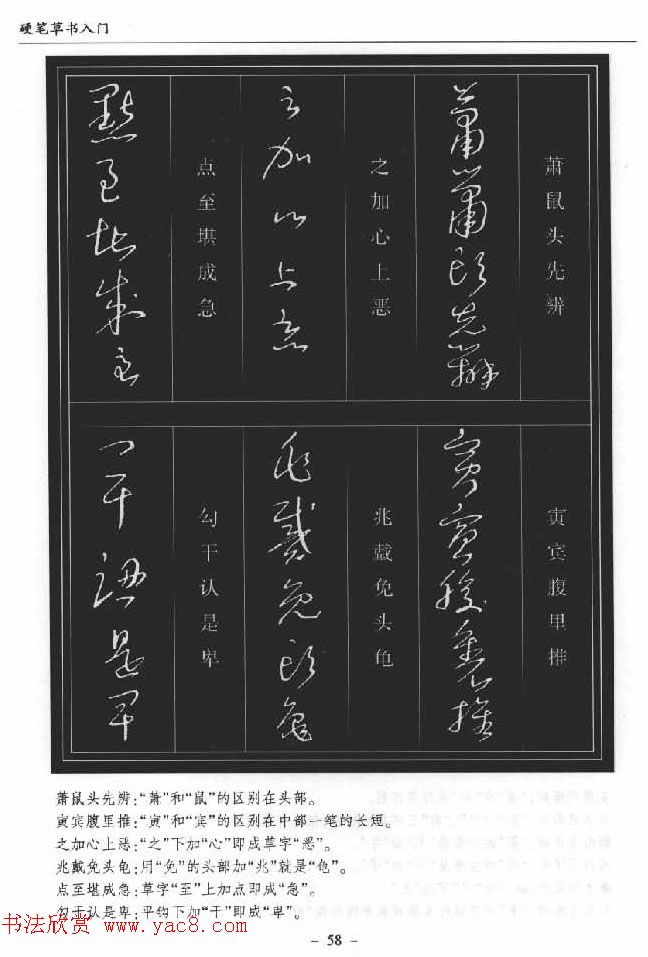 硬笔草书入门
萧鼠头先辨
寅宾腹里推
之加心上恶
兆戴免头龟
点至堪成急
勾干认是卑
萧鼠头先辨:“萧”和“鼠”的区别在头部。
寅宾腹里推:“寅”和“宾”的区别在中部一笔的长短。
之加心上恶:“之”下加“心”即成草字“恶”。
兆戴免头龟:用“免”的头部加“兆”就是“龟”。
点至堪成急:草字“至”上加点即成“急”。
勾干认是卑:平钩下加“干”即成“卑”。
书法欣赏 www.yac8.com
- 58 -